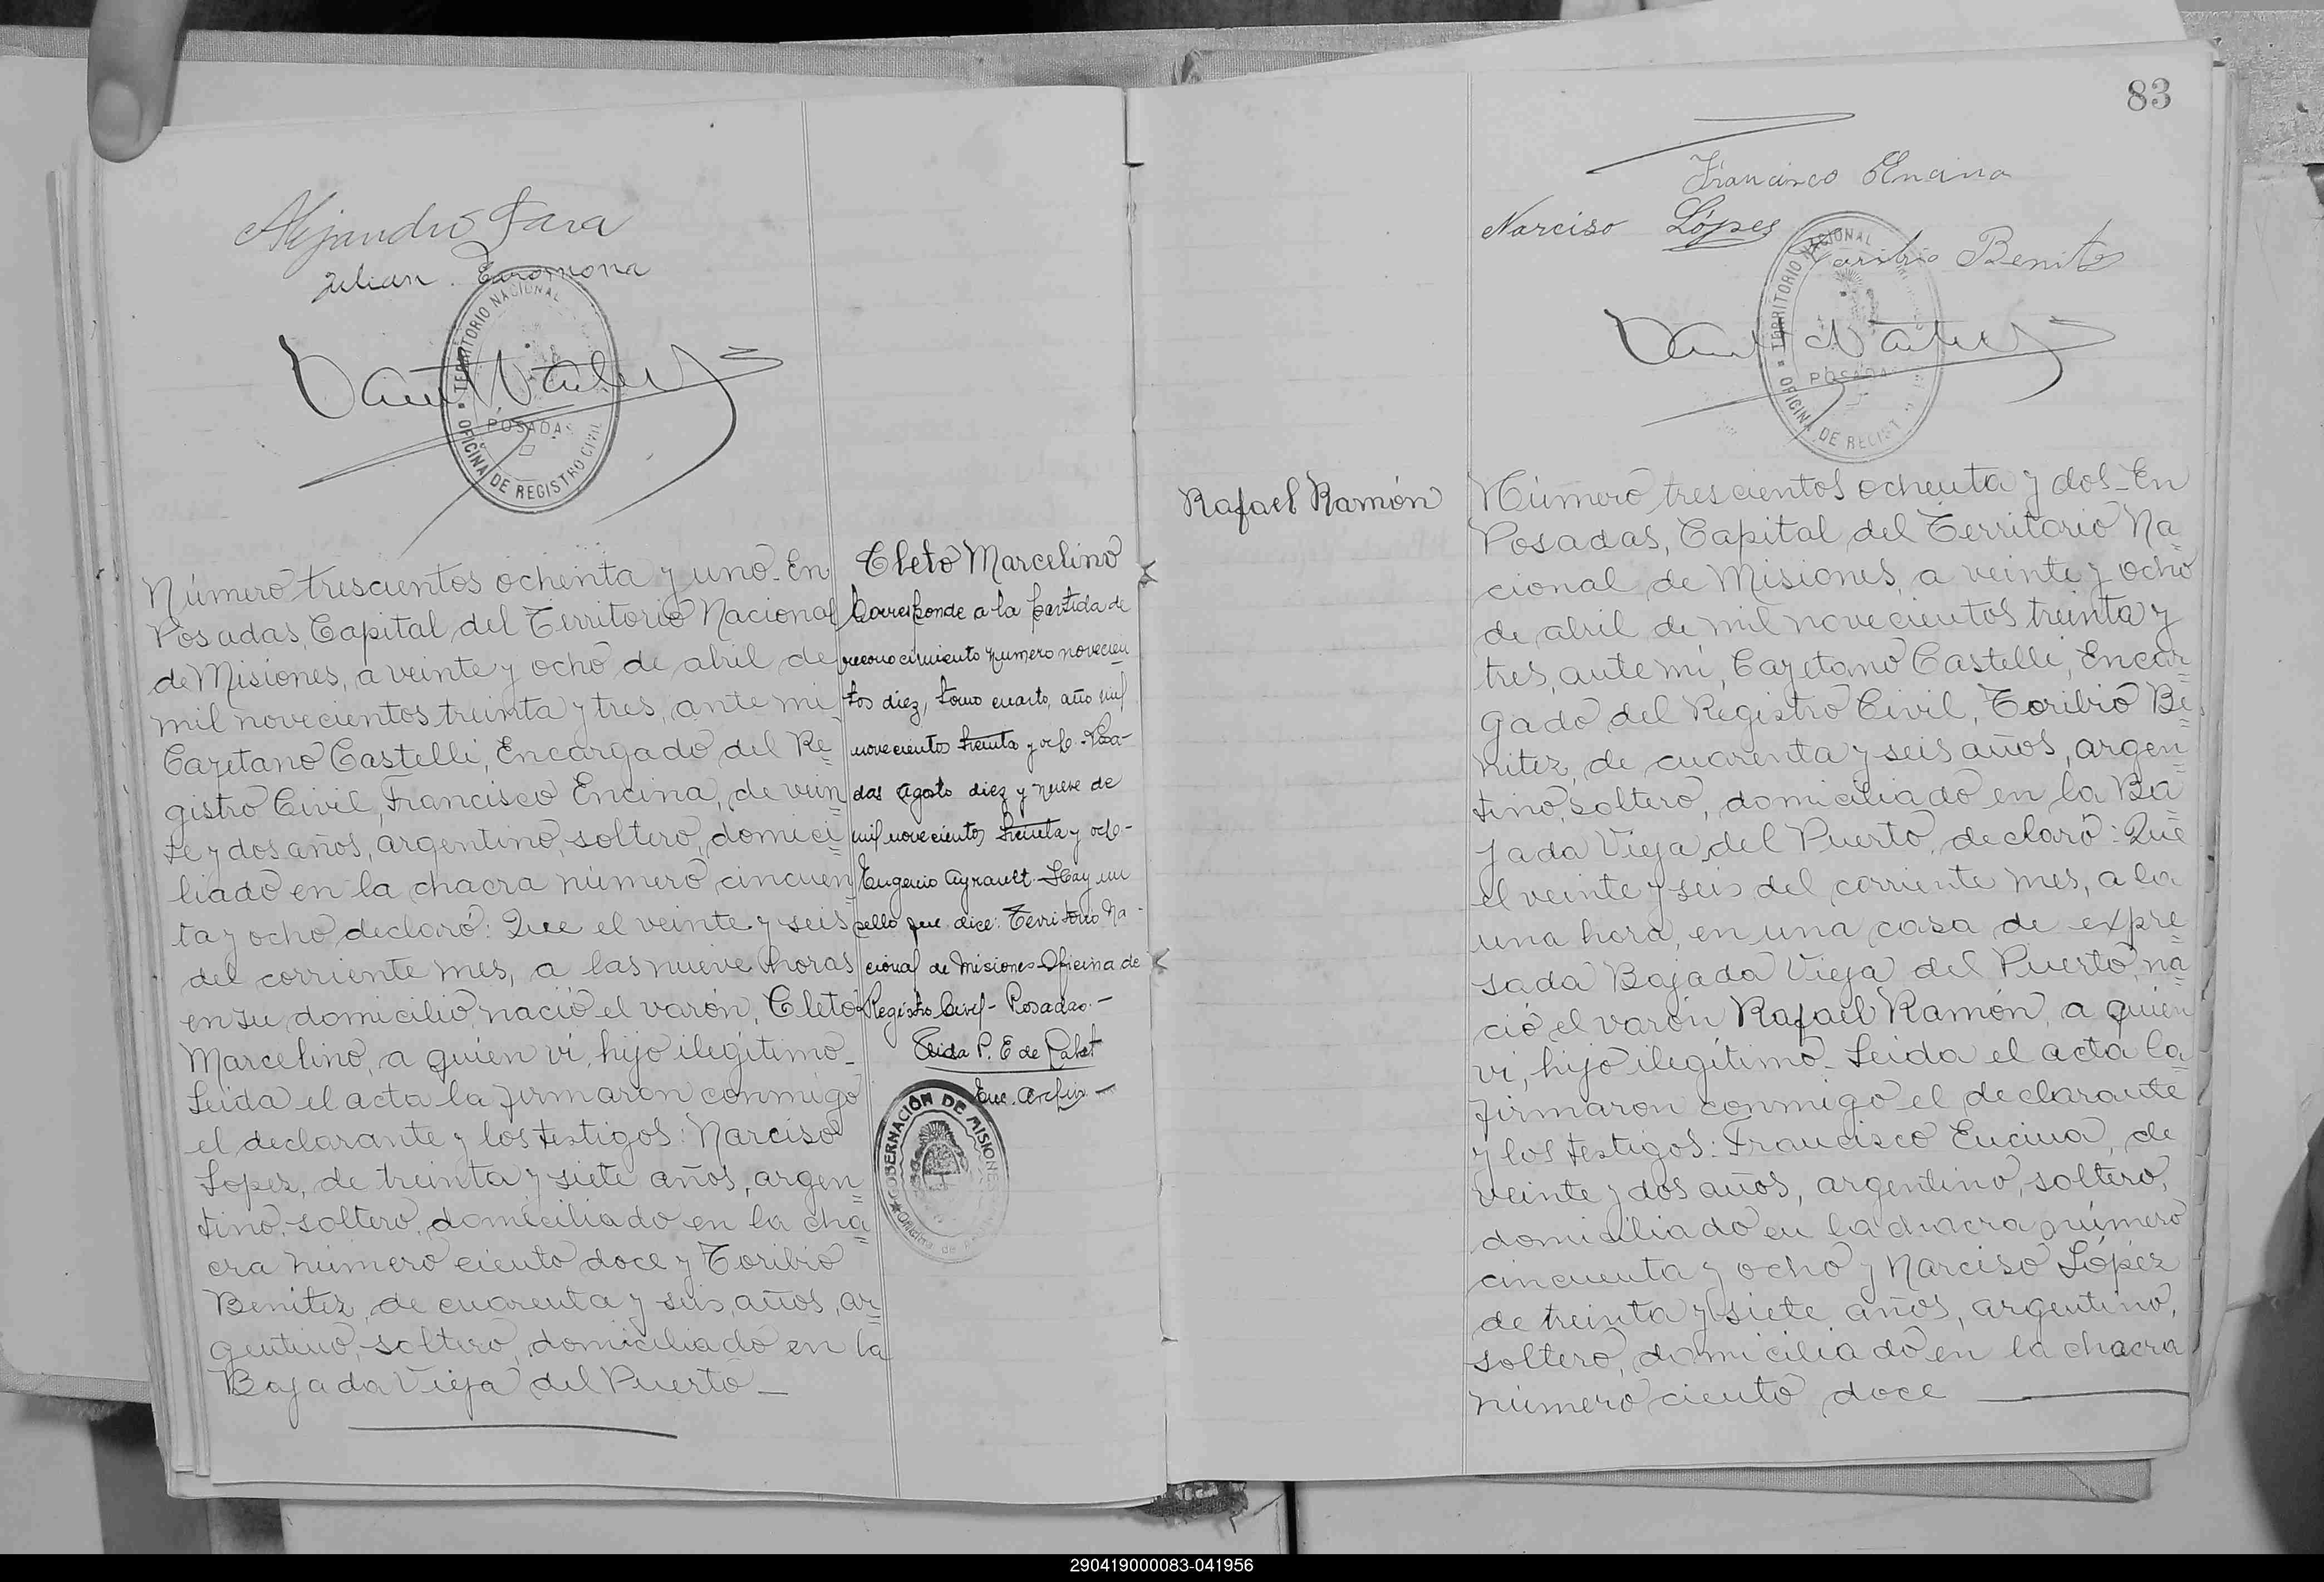 Alejandro Jara
Julian
TERRITORIO NACIONAL
POSADAS
OFICINA DE REGISTRO CIVIL
Número trescientos ochenta y uno. En
Posadas, Capital del Territorio Nacional
de Misiones, a veinte y ocho de abril de
mil novecientos treinta y tres, ante mi
Cayetano Castelli, Encargado del Re=
gistro Civil, Francisco Encina, de vein=
te y dos años, argentino, soltero, domici=
liado en la chacra número cincuen=
ta y ocho declaró: Que el veinte y seis
del corriente mes, a las nueve horas
en su domicilio nació el varón, Cleto
Marcelino, a quien vi, hijo ilegítimo_
Leida el acta la firmaron conmigo
el declarante y los testigos: Narciso
Lopez, de treinta y siete años, argen=
tino, soltero, domiciliado en la cha=
cra número ciento doce y Toribio
Benitez, de cuarenta y seis, años, ar=
gentino, soltero, domiciliado en la
Bajada Vieja del Puerto_
Cleto Marcelino
Corresponde a la partida de
reconocimiento numero novecien
tos diez, tomo cuarto, año mil
novecientos treinta y ocho. Posa-
das Agosto diez y nueve de
mil novecientos treinta y ocho-
Eugenio Ayrault - Hay un
sello que dice: Territorio Na-
cional de Misiones Oficina de
Registro Civil - Posadas. -
P. E de
Enc.
GOBERNACIÓN DE MISIONES
83
Francisco Encina
Narciso Lópes
Toribio Benite
TERRITORIO NACIONAL
POSADAS
OFICINA DE REGIST
Rafael Ramón
Número trescientos ochenta y dos_En
Posadas, Capital del Territorio Na=
cional de Misiones, a veinte y ocho
de abril de mil novecientos treinta y
tres, ante mí, Cayetano Castelli, Encar=
gado del Registro Civil, Toribio Be=
nitez, de cuarenta y seis años, argen=
tino, soltero, domiciliado en la Ba=
jada Vieja del Puerto, declaró: Que
el veinte y seis del corriente mes, a la
una hora, en una casa de expre=
sada Bajada Vieja del Puerto, na=
ció el varón Rafael Ramón, a quien
vi, hijo ilegítimo_ Leida el acta la
firmaron conmigo el declarante
y los testigos: Francisco Encina, de
veinte y dos años, argentino, soltero,
domiciliado en la chacra número
cincuenta y ocho y Narciso López
de treinta y siete años, argentino,
soltero, domiciliado en la chacra
número ciento doce
290419000083-041956